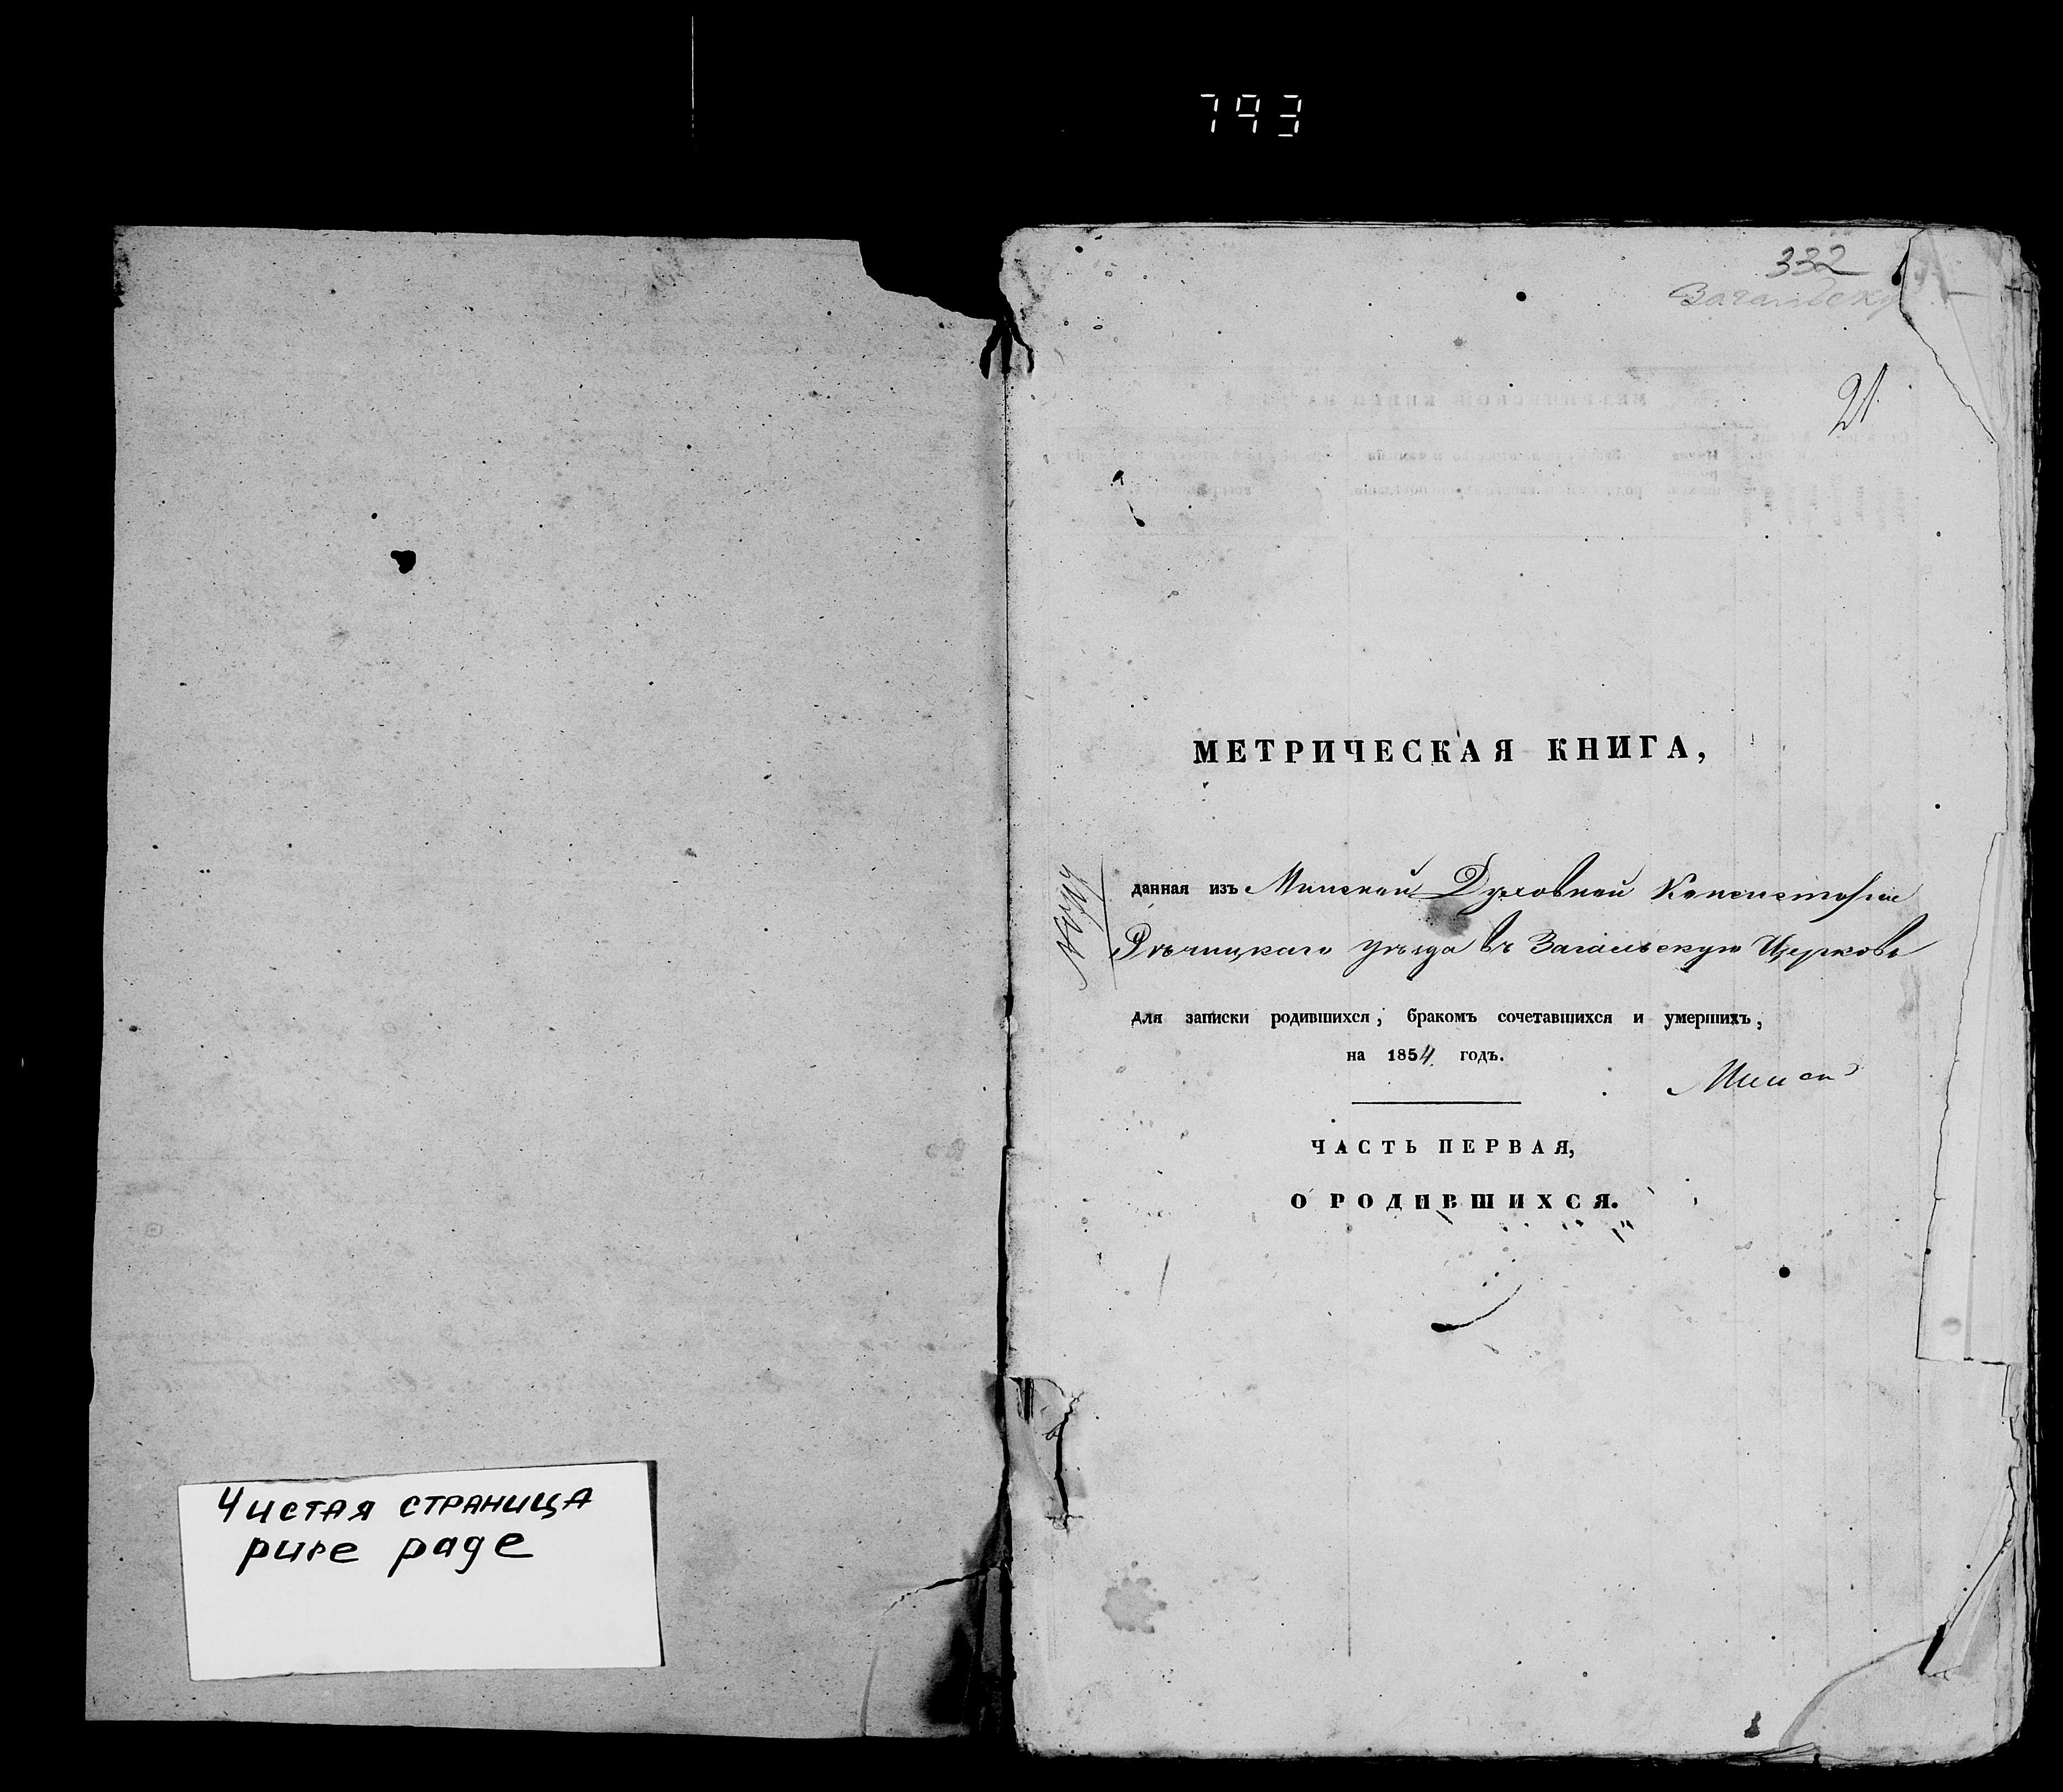 793
Чистая страница
pure page
332
Загальску
21.
МЕТРИЧЕСКАЯ КНИГА,
данная изъ Минской Духовной Консисторіи
Рѣчицкаго уѣзда въ Загальскую Церковь
для записки родившихся, бракомъ сочетавшихся и умершихъ,
на 1854. годъ.
ЧАСТЬ ПЕРВАЯ,
О РОДИВШИХСЯ.